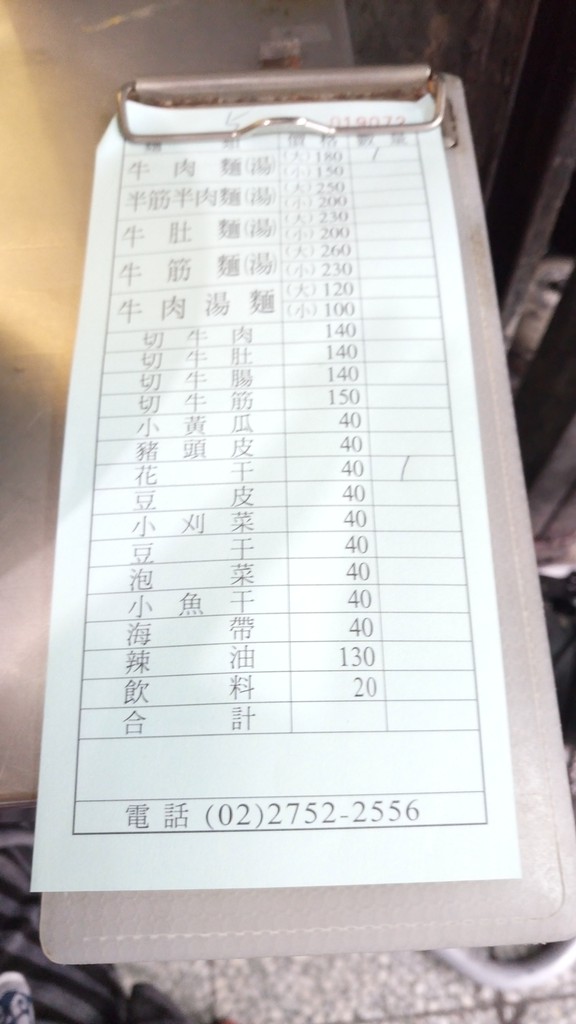 019072
種 類 價 格 數 量
牛 肉 麵(湯) (大) 180
(小) 150
半筋半肉麵(湯) (大) 250
(小) 200
牛 肚 麵(湯) (大) 230
(小) 200
牛 筋 麵(湯) (大) 260
(小) 230
牛 肉 湯 麵 (大) 120
(小) 100
切 牛 肉 140
切 牛 肚 140
切 牛 腸 140
切 牛 筋 150
小 黃 瓜 40
豬 頭 皮 40
花 干 40
豆 皮 40
小 刈 菜 40
豆 干 40
泡 菜 40
小 魚 干 40
海 帶 40
辣 油 130
飲 料 20
合 計
電 話 (02)2752-2556